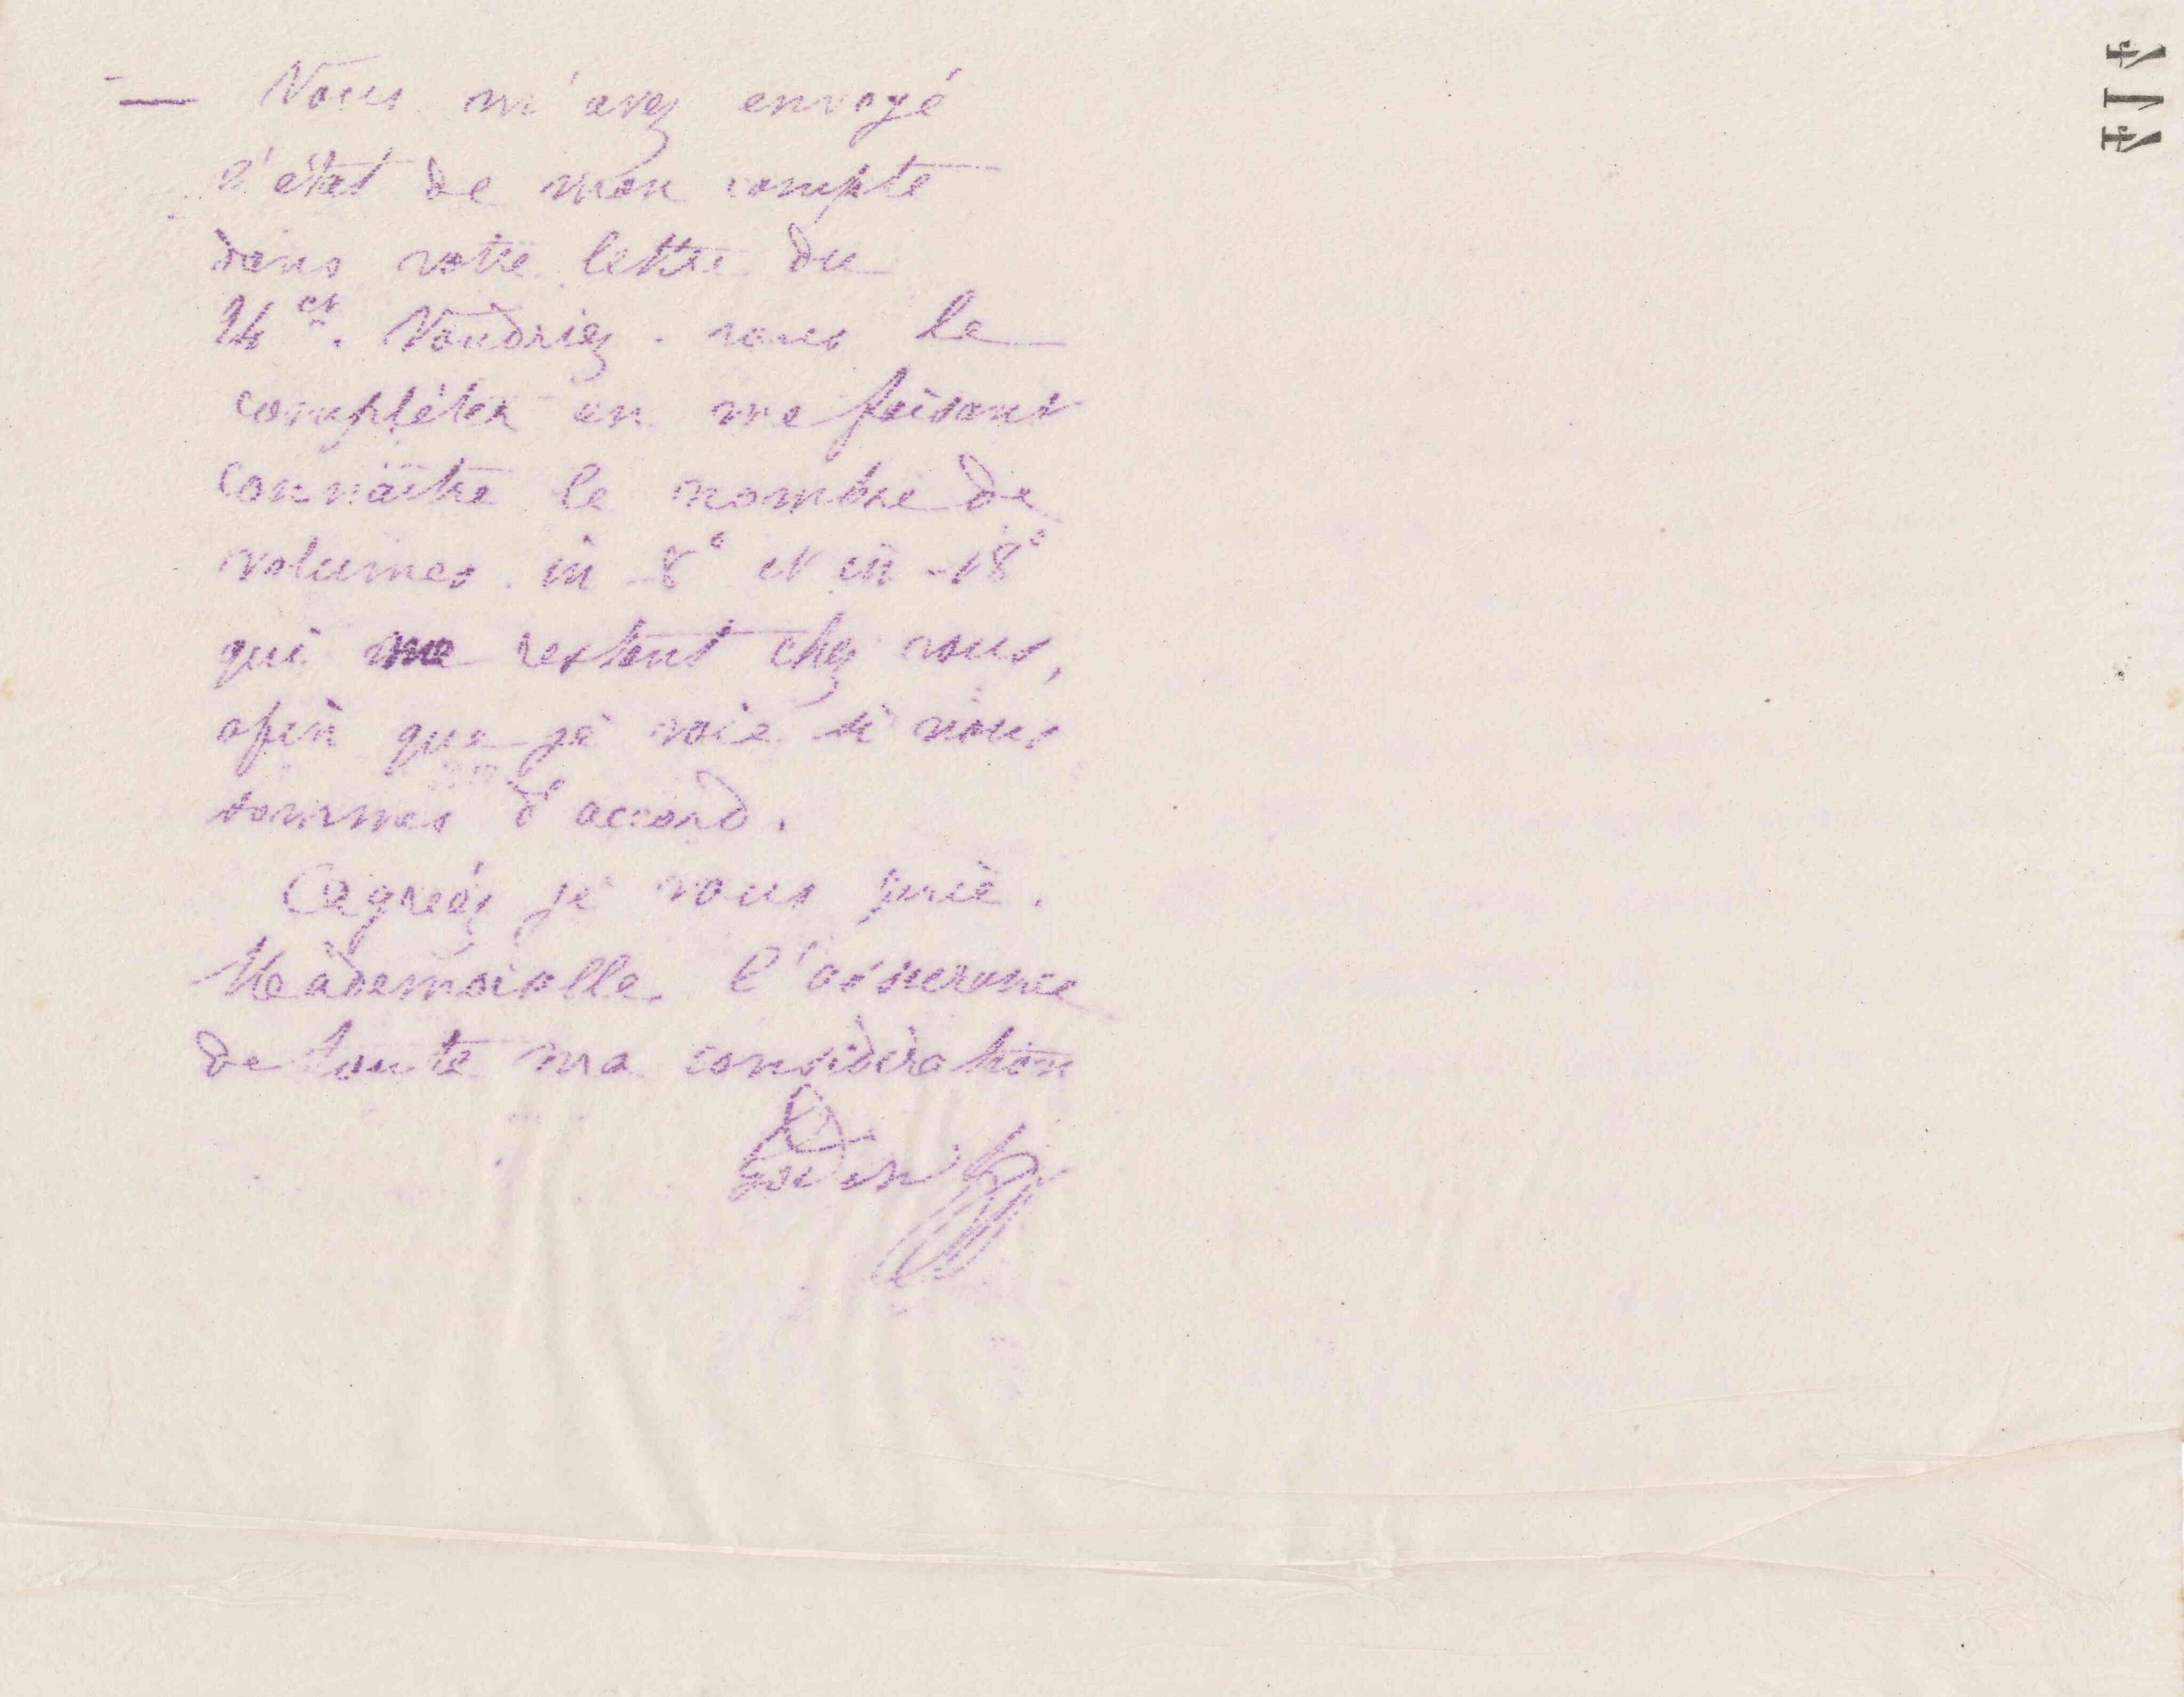 — Vous m'avez envoyé
l'état de mon compte
dans votre lettre du
24 ct. Voudriez-vous le
compléter en me faisant
connaître le nombre de
volumes in-8° et in-18°
qui me restent chez vous,
afin que je voie si nous
sommes d'accord.
Agréez je vous prie,
Mademoiselle, l'assurance
de toute ma considération
Godin